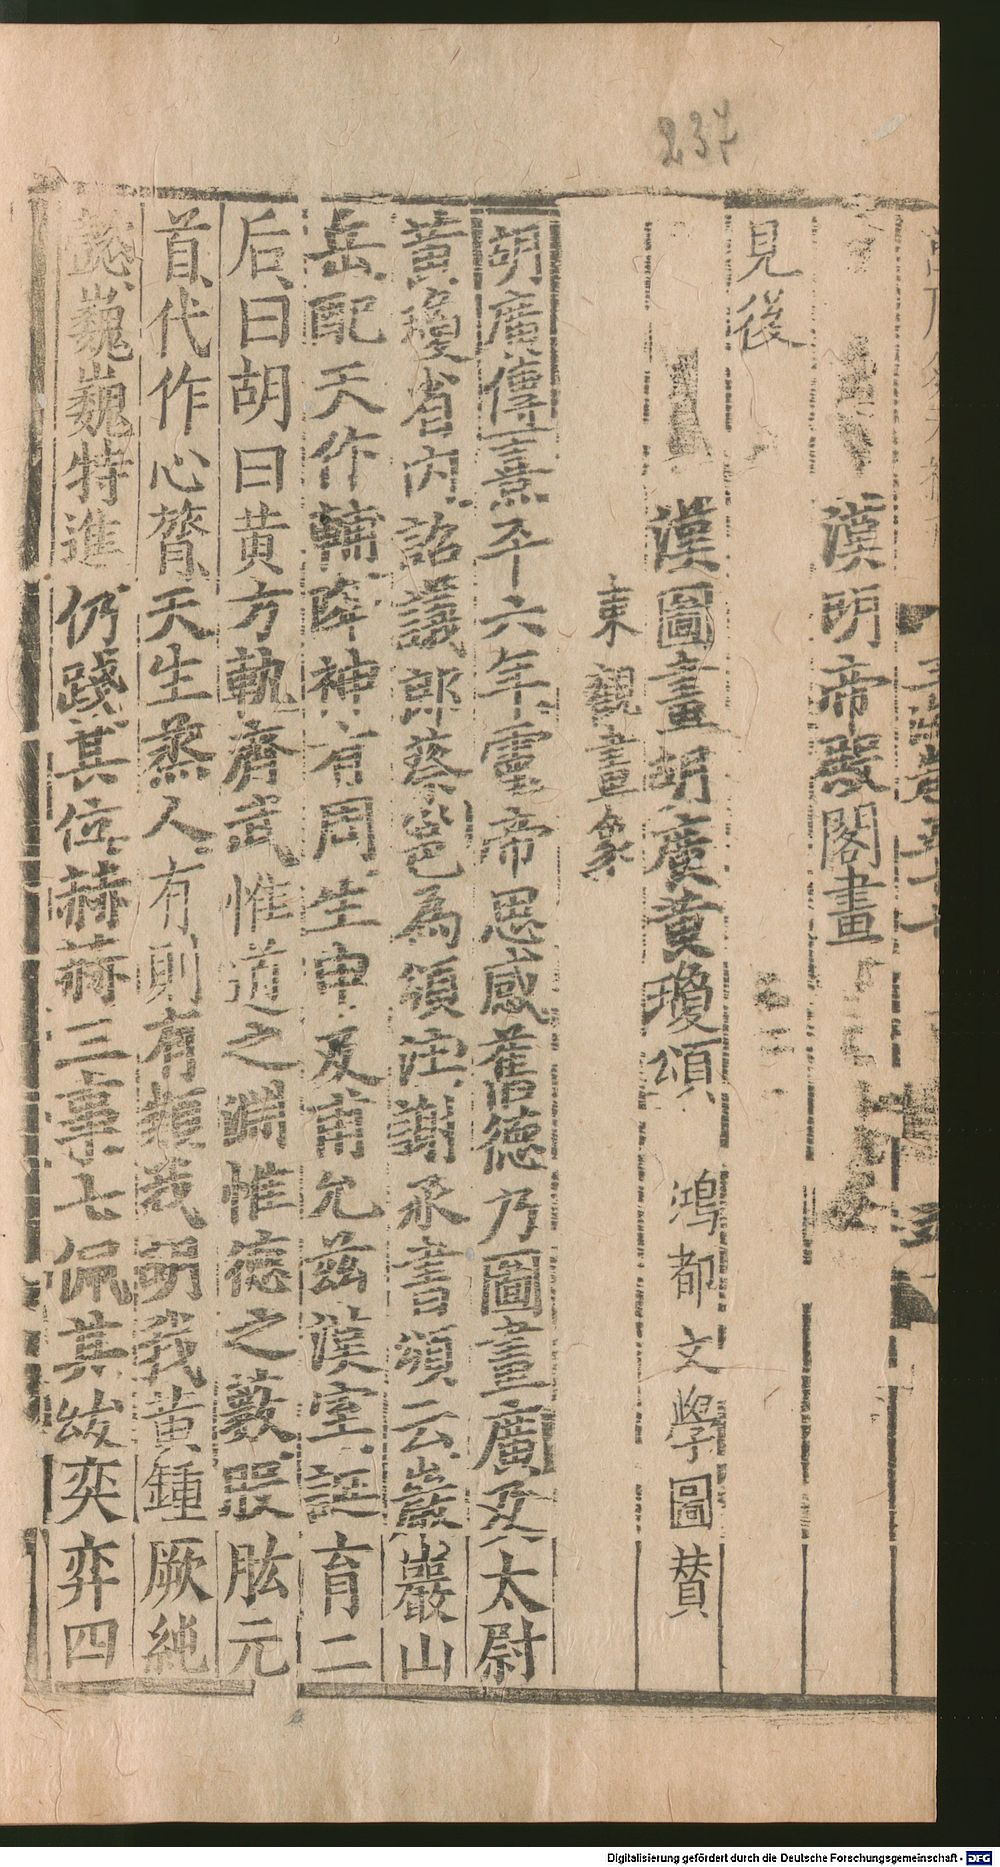 237
漢明帝殿閣畫
見後
漢圖畫胡廣黃瓊頌 鴻都文學圖贊
東觀畫象
胡廣傳熹平六年靈帝思感舊德乃圖畫廣及太尉
黃瓊省內詔議郎蔡邕為頌注謝承書頌云巖巖山
岳配天作輔降神有周生申及甫允茲漢室誕育二
后曰胡曰黄方軌齊武惟道之淵惟德之藪股肱元
首代作心膂天生蒸人有則有類我胡我黄鍾厥純
懿巍巍特進仍踐其位赫赫三事七佩其紱奕弈四
Digitalisierung gefördert durch die Deutsche Forschungsgemeinschaft - DFG